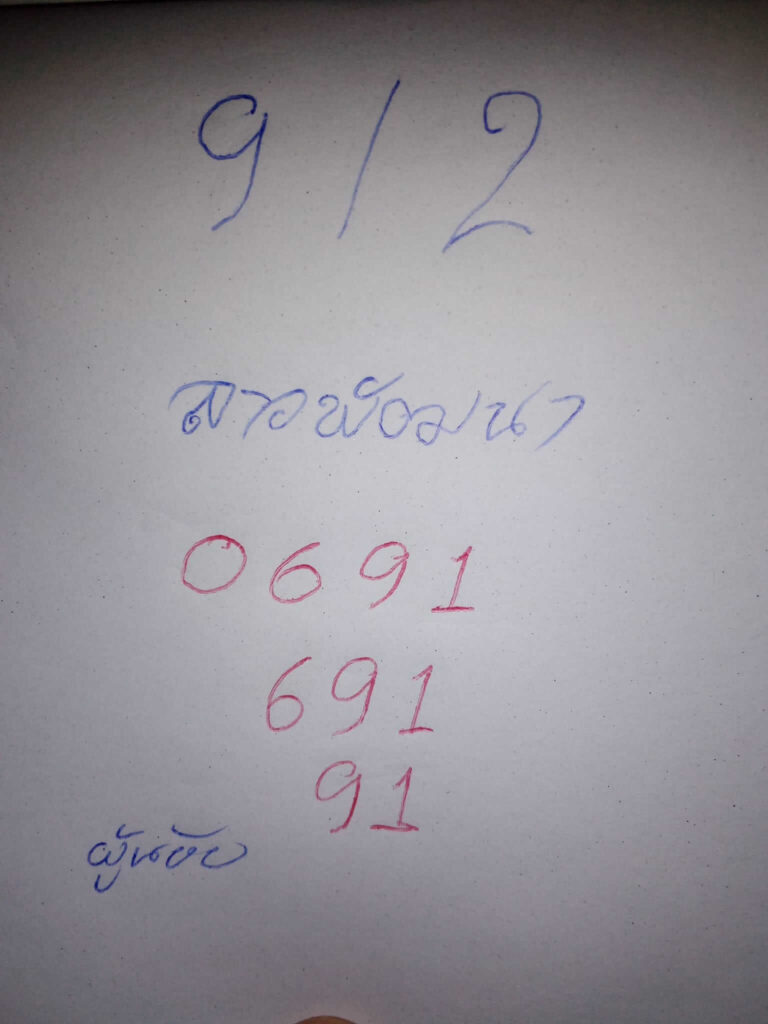 9/2
ลาวพัฒนา
0691
691
91
ผู้น้อย